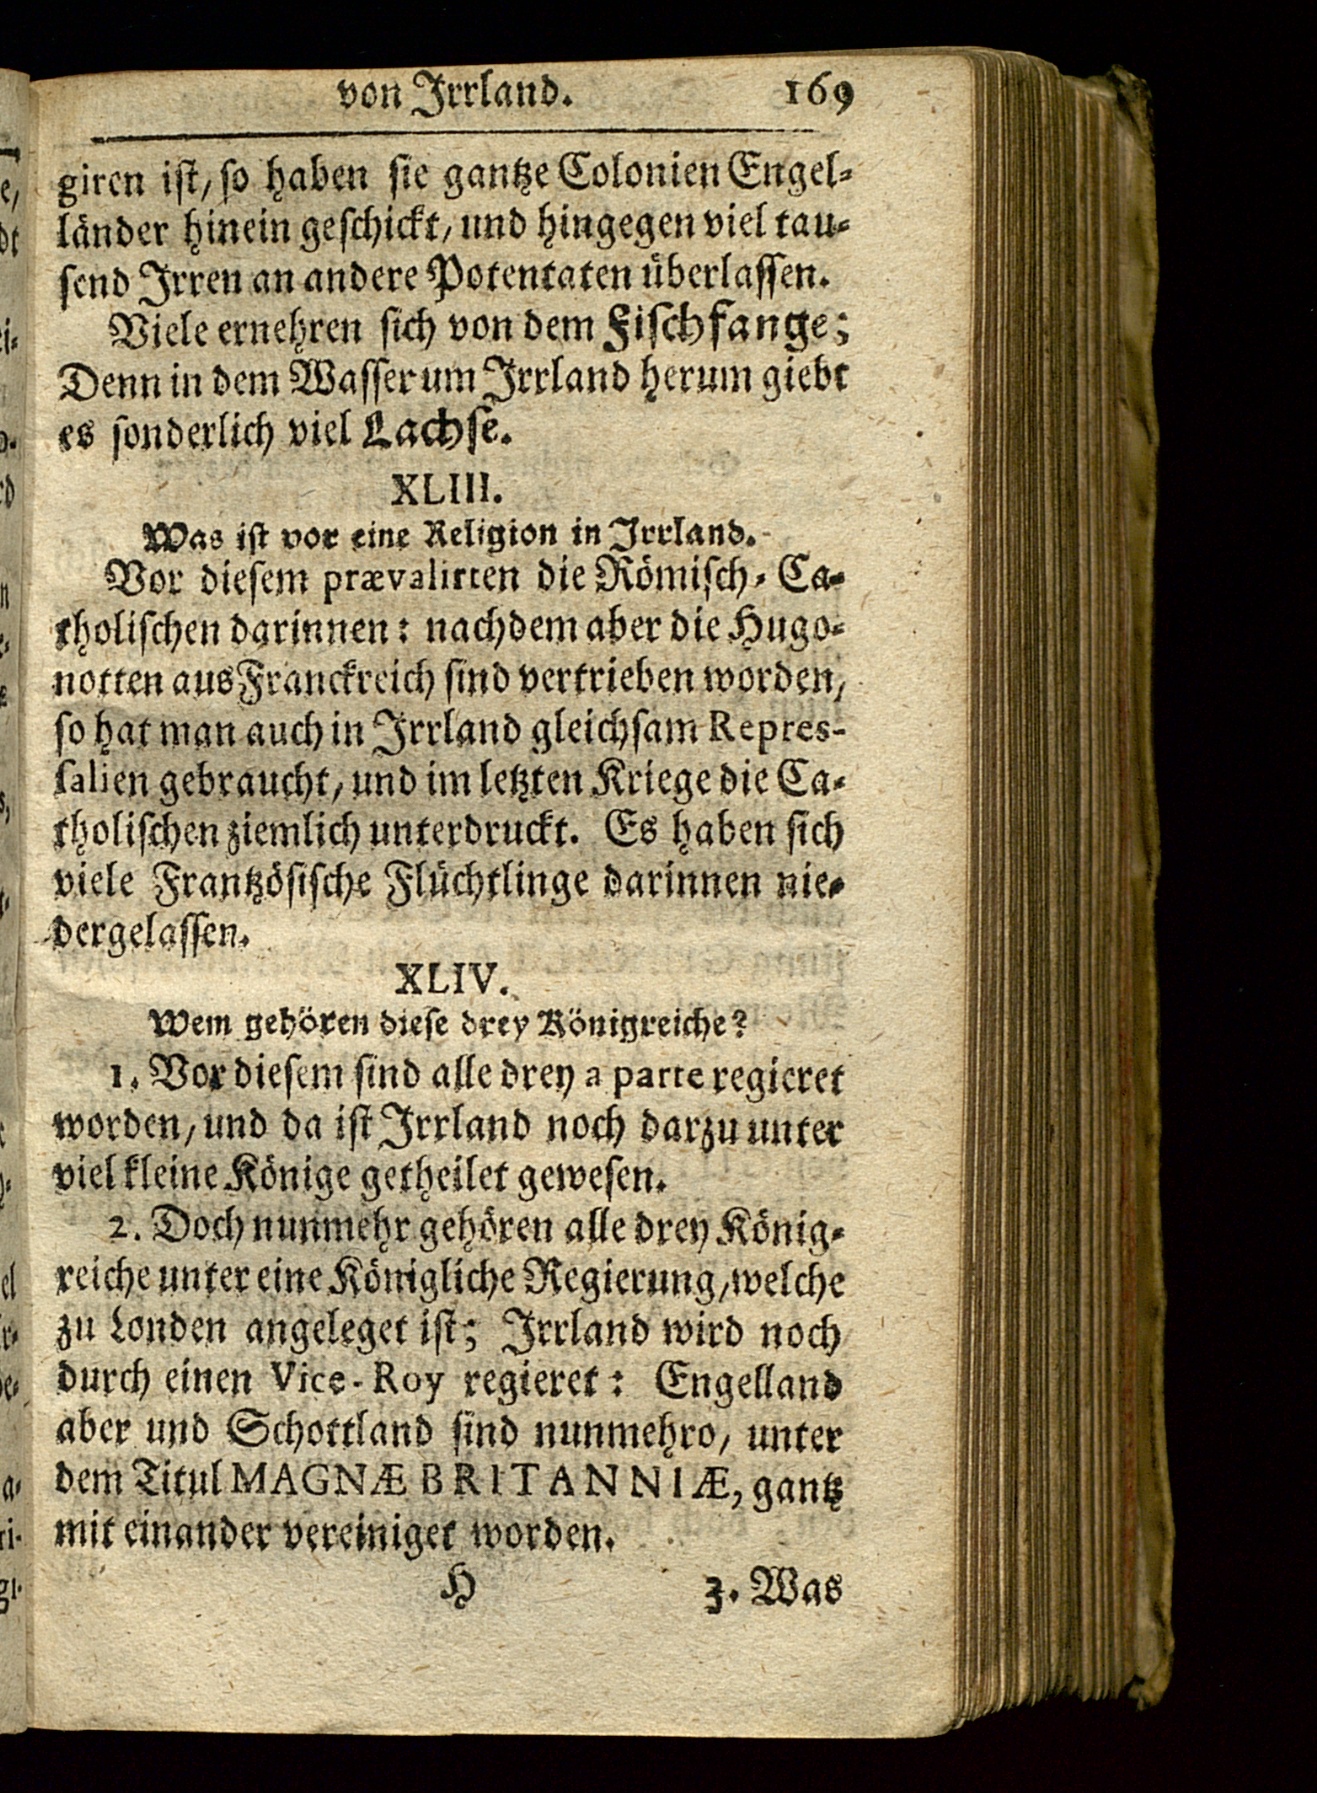 von Irrland. 169
giren ist, so haben sie gantze Colonien Engel-
länder hinein geschickt, und hingegen viel tau-
send Irren an andere Potentaten überlassen.
Viele ernehren sich von dem Fischfange;
Denn in dem Wasser um Irrland herum giebt
es sonderlich viel Lachse.
XLIII.
Was ist vor eine Religion in Irrland.
Vor diesem prævalirten die Römisch-Ca-
tholischen darinnen: nachdem aber die Hugo-
notten aus Franckreich sind vertrieben worden,
so hat man auch in Irrland gleichsam Repres-
salien gebraucht, und im letzten Kriege die Ca-
tholischen ziemlich unterdruckt. Es haben sich
viele Frantzösische Flüchtlinge darinnen nie-
dergelassen.
XLIV.
Wem gehören diese drey Königreiche?
1. Vor diesem sind alle drey a parte regieret
worden, und da ist Irrland noch darzu unter
viel kleine Könige getheilet gewesen.
2. Doch nunmehr gehören alle drey König-
reiche unter eine Königliche Regierung, welche
zu Londen angeleget ist; Irrland wird noch
durch einen Vice-Roy regieret: Engelland
aber und Schottland sind nunmehro, unter
dem Titul MAGNÆ BRITANNIÆ, gantz
mit einander vereiniget worden.
H 3. Was